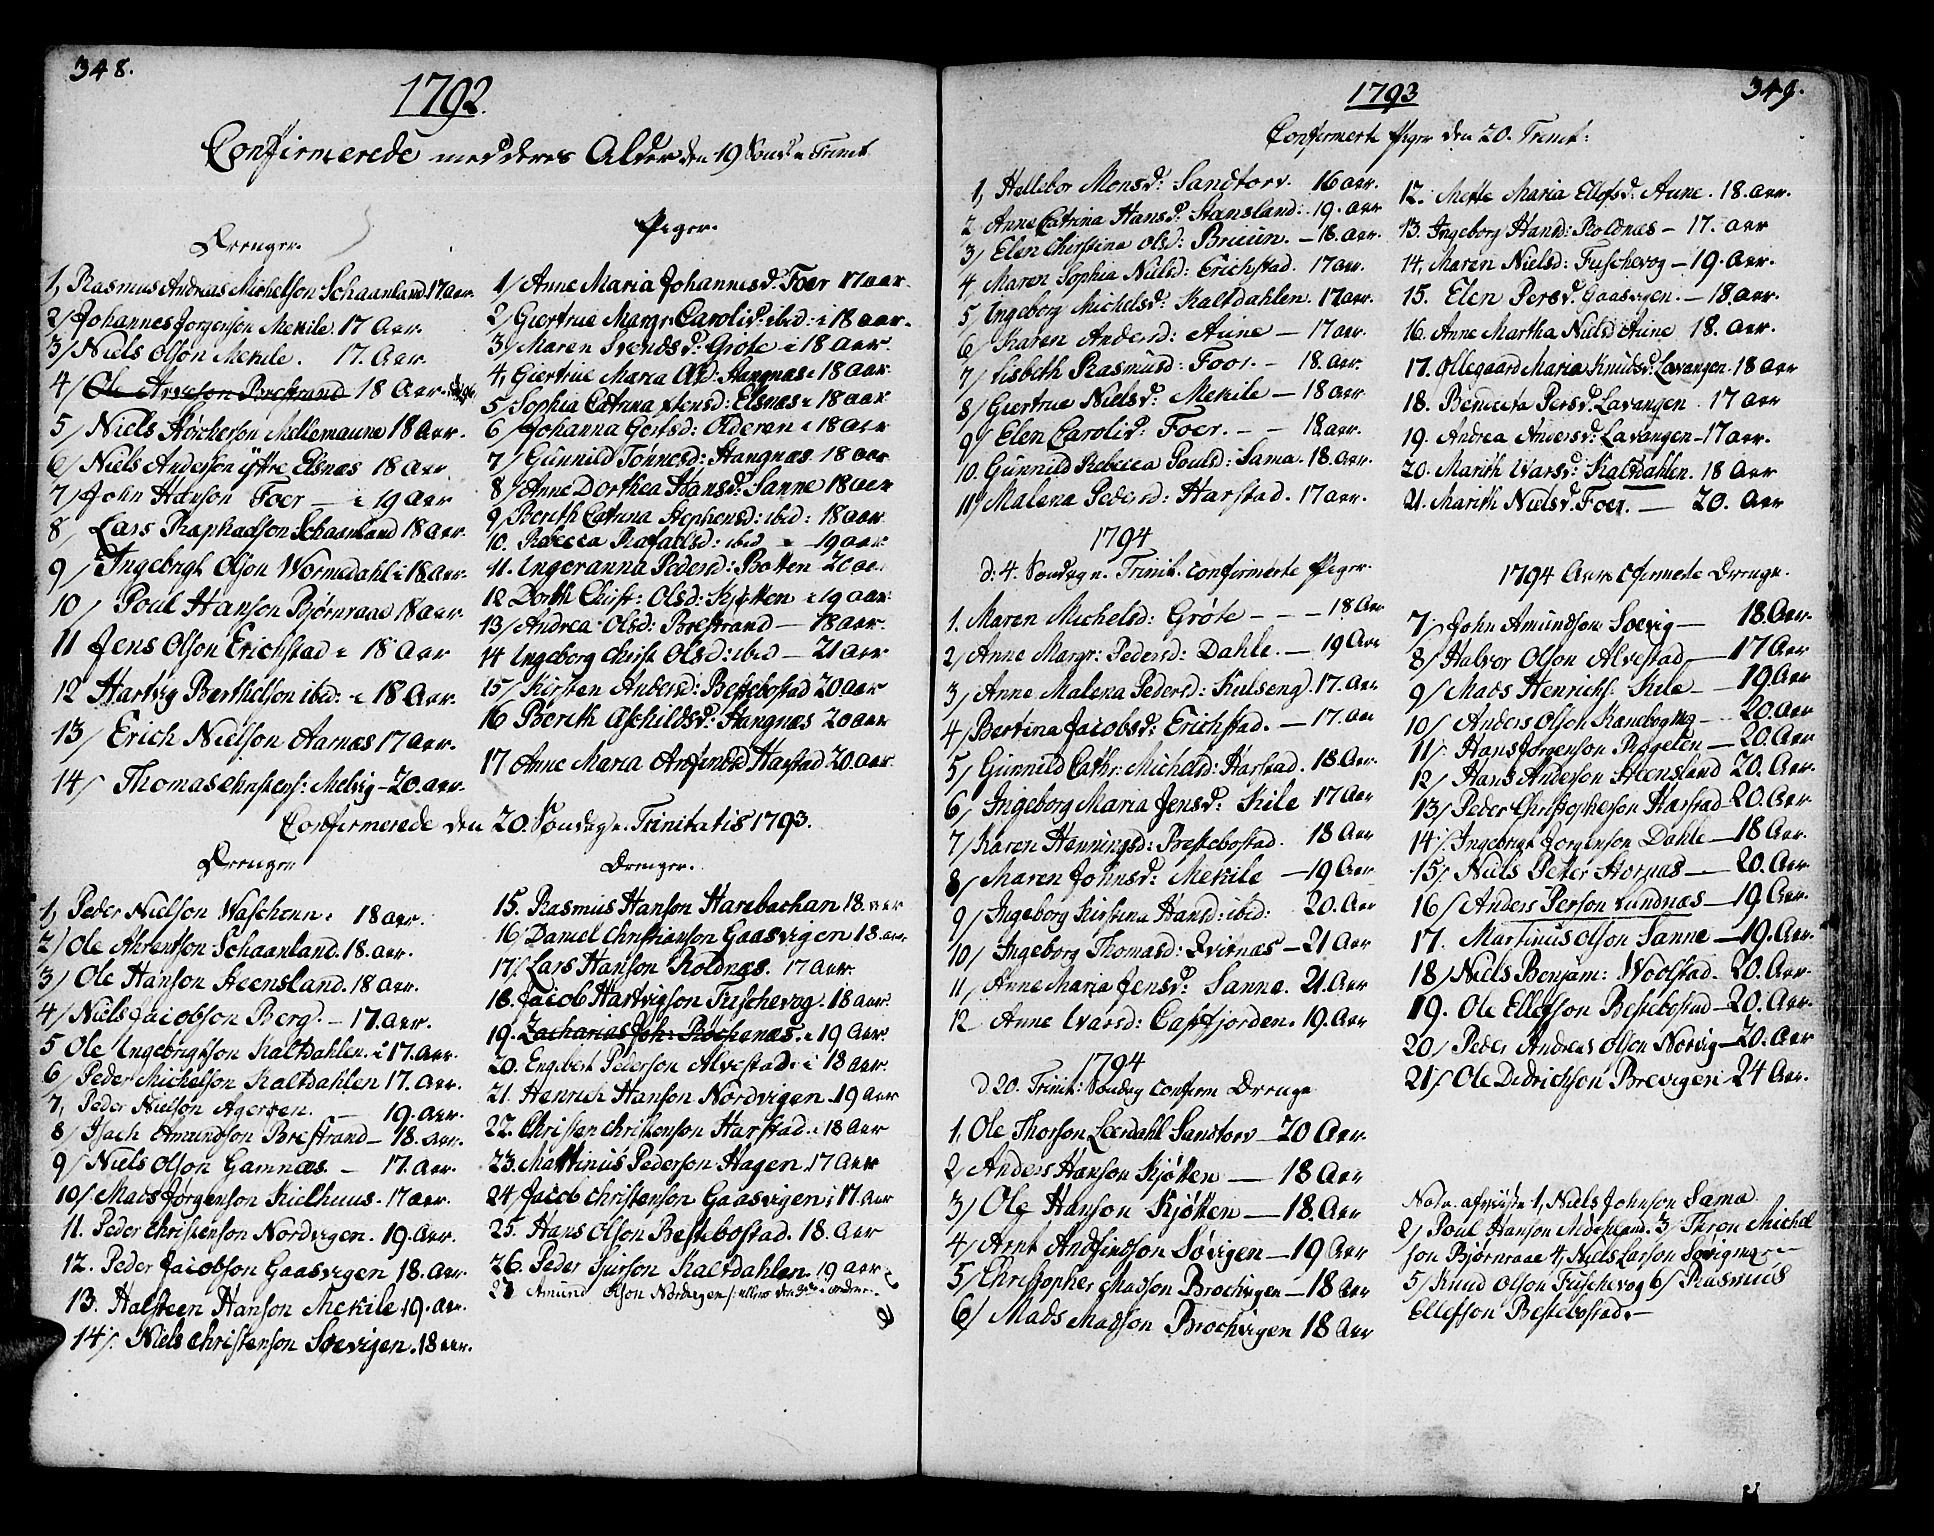 348.
1792.
Confirmerede med deres Alder den 19 Sønd: e Trinit
Drenger.
1, Rasmus Andreas Michelson Schaanland 17 aar.
2/ Johannes Jorgenson Mekile. 17 Aar.
3/ Niels Olson Mekile. 17. Aar.
4/ Ole Arveson Brestrand 18 Aar.
5/ Niels Hocherson Mellemaune 18 Aar.
6/ Niels Anderson Yttre Elsnæs 18 Aar
7/ John Hanson Foer — i 19 Aar
8/ Lars Raphaelson Schaanland 18 aar.
9/ Ingebrigt Olson Wormedahl i 18 Aar.
10/ Poul Hanson Bjørnraae 18 aar.
11 Jens Olson Erichstad i 18 Aar
12 Hartvig Berthelson ibid: i 18 Aar.
13/ Erich Nielson Aarnæs 17 Aar.
14/ Thomas Christens: Melvig - 20. aar.
Piger.
1/ Anne Maria Johannesd: Foer 17 aar.
2/ Giertrue Margr: Carolid: ibid: i 18 aar.
3/ Maren Svendsd: Grøte i 18 Aar.
4, Giertrue Maria Ol.d: Hangnæs 18 aar.
5/ Sophia Catrina Stensd: Elsnæs i 18 aar
6/ Johanna Gertsd: Olderen i 18 Aar
7/ Gunnild Tonnesd: Hangnæs 18 aar
8/ Anne Dorthea Hansd: Sanne 18 aar
9/ Berith Catrina Stephensd: ibid: 18 aar.
10. Rebecca Rafaelsd: ibid — 19 aar.
11. Ingeranna Pedersd: Botten 20 aar
12 Dorth Christ: Olsd: Kjøtten i 19 aar.
13/ Andrea Olsd: Brestrand — 18 aar.
14 Ingeborg Christ Olsd: ibid — 21 aar
15/ Kirsten Andersd: Bestebostad 20 aar
16 Berith Aschildsd: Hangnæs 20 aar
17 Anne Maria Anfindsd Harstad 20. aar.
Confirmerede den 20. Søndag e. Trinitatis 1793.
Drenger
1, Peder Nielson Waschenn: 18 aar.
2/ Ole Ahrentson Schaanland. 18. aar.
3/ Ole Hanson Steensland. 18 aar.
4/ Niels Jacobson Berg. — 17. aar.
5 Ole Ingebrigtson Kaltdahlen. i 17. Aar.
6/ Peder Michelson Kaltdahlen 17. Aar.
7, Peder Nielson — 19. aar.
8/ Isach Amundson Brestrand — 18. aar.
9/ Niels Olson Gamnæs — 17. Aar.
10/ Mads Jørgenson Kielhuus. 17 aar.
11. Peder Christenson Nordvigen. 19. Aar.
12. Peder Jacobson Gaasvigen 18. Aar
13. Halsteen Hanson Mekile. 19. Aar.
14/. Niels Christenson Soevigen. 18 aar.
Drenger.
15. Rasmus Hanson Harebachan 18. aar
16/ Daniel Christianson Gaasvigen 18. aar
17/. Lars Hanson Roldnæs. 17 Aar.
18. Jacob Hartvigson Fuschevog. 18 aar.
19. Zacharias Joh: Røchenæs. i 19 Aar.
20. Engebret Pederson Alvestad. i 18 aar.
21. Henrich Hanson Nordvigen 19 Aar
22. Christen Christenson Harstad. i 18 Aar
23. Martinus Pederson Hagen. 17 Aar
24/ Jacob Christenson Gaasvigen i 17. Aar
25. Hans Olson Bestebostad. 18. Aar
26. Peder Siurson Kaltdahlen. 19 aar.
27 Amund Olson Nordvigen
349.
1793
Confirmerte Piger den 20. Trinit:
1, Hellebor Monsd: Sandtorv. 16 aar.
2 Anne Catrina Hansd: Stansland: 19. aar
3/ Elen Christina Olsd: Bruun. — 18. aar.
4 Maren Sophia Nielsd: Erichstad. 17 aar.
5 Ingeborg Michelsd: Kaltdahlen. 17 aar.
6/ Karen Andersd: Aune — 17 aar.
7/ Lisbeth Rasmusd: Foer. — 18. aar.
8/ Giertrue Nielsd: Mekile — 18 aar
9/ Elen Carolid: Foer. — — 18. aar.
10. Gunnild Rebecca Poulsd: Sama. 18. aar.
11/ Malena Pedersd: Harstad. 17 aar.
12. Mette Maria Ellefsd: Aune. 18. aar.
13. Ingeborg Hansd: Roldnæs — 17. aar
14, Maren Nielsd: Fuschevog — 19. Aar.
15. Elen Persd: Gaasvigen. — 18. aar.
16. Anne Martha Nielsd Aune 18. aar.
17. Ollegaard Maria Knudsd: Lavangen. 18 aar
18. Benedeta Persd: Lavangen. 17 aar
19. Andrea Andersd: Lavangen — 17 aar.
20. Marith Ivarsd: Kaltdahlen. 18 Aar
21. Marith Nielsd. Foer. — 20. Aar
1794
d: 4. Søndag e. Trinit. confirmerte Piger.
1. Maren Michelsd: Grøte — — — 18. Aar
2/ Anne Margr: Pedersd: Dahle. — 19 Aar
3/ Anne Malena Pedersd: Kulseng. 17. Aar
4/ Bertina Jacobsd: Erichstad. — 17. aar
5/ Gunnild Cathr: Michelsd: Harstad. 18. Aar.
6, Ingeborg Maria Jensd: Kile 17 Aar
7/ Karen Henningsd: Bestebostad. 18 Aar
8/ Maren Johnsd: Mekile — 19 Aar
9/ Ingeborg Kirstina Hansd: ibid: 20. Aar
10/ Ingeborg Thomasd: Qvitnæs — 21 Aar
11, Anne Maria Jensd: Sanne. 21. Aar
12 Anne Ivarsd: Cassfjorden. 19. Aar
1794
d 20. Trinit: Søndag confirm Drenge
1, Ole Thorson Leerdahl Sandtorv — 20 Aar.
2/ Anders Hanson Kjøtten — 18 Aar
3/ Ole Hanson Kjøtten — 18. Aar
4/ Arnt Andfindson Søvigen — 19 Aar
5/ Christopher Madson Brochvigen — 18 Aar
6/ Mads Madson Brochvigen 18 Aar
1794 Aars Cofirmerte Drenge.
7/ John Amundson Soevig — 18. Aar.
8/ Halvor Olson Alvestad — 17 Aar
9/ Mads Henrichs: Kile — 19 Aar
10/ Anders Olson Kanebog — 20. Aar
11/. Hans Jorgenson — 20. Aar
12/ Hans Anderson Steensland 20. Aar
13/ Peder Christopherson Harstad 20. Aar
14/. Ingebrigt Jorgenson Dahle — 18 Aar.
15/. Niels Peter — 20. Aar
16/ Anders Person Lundnæs — 19 Aar.
17. Martinus Olson Sanne — 19. Aar.
18/ Niels Benjam: Woolstad. 20. Aar.
19. Ole Ellefson Bestebostad — 20. Aar.
20/ Peder Andreas Olson Norvig — 20. Aar.
21/. Ole Didrichson Brevigen 24 Aar.
Notr. afviiste 1, Niels Johnson Sama
2/ Poul Hanson 3/ Thron Michel
son Bjørnraae 4, Niels Larson
5/ Knud Olson Fuschevog 6/ Rasmus
Ellefson Bestebostad. —